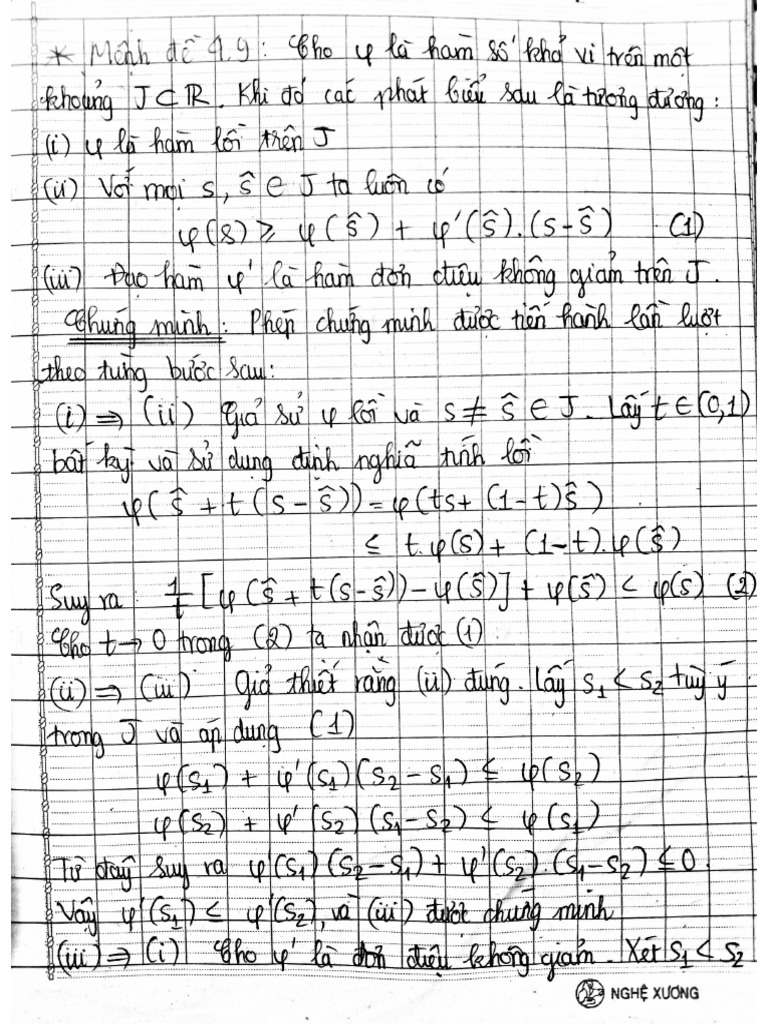 * Mệnh đề 4.9 : Cho φ là hàm số khả vi trên một
khoảng J ⊂ ℝ. Khi đó các phát biểu sau là tương đương :
(i) φ là hàm lồi trên J
(ii) Với mọi s, ŝ ∈ J ta luôn có
φ(s) ≥ φ(ŝ) + φ'(ŝ).(s-ŝ) (1)
(iii) Đạo hàm φ' là hàm đơn điệu không giảm trên J.
Chứng minh : Phép chứng minh được tiến hành lần lượt
theo từng bước sau:
(i) ⇒ (ii) Giả sử φ lồi và s ≠ ŝ ∈ J. Lấy t ∈ (0,1)
bất kỳ và sử dụng định nghĩa tính lồi
φ(ŝ + t(s-ŝ)) = φ(ts + (1-t)ŝ)
≤ t.φ(s) + (1-t).φ(ŝ)
Suy ra : 1/t [φ(ŝ + t(s-ŝ)) - φ(ŝ)] + φ(ŝ) ≤ φ(s) (2)
Cho t → 0 trong (2) ta nhận được (1)
(ii) ⇒ (iii) Giả thiết rằng (ii) đúng. Lấy s₁ < s₂ tuỳ ý
trong J và áp dụng (1)
φ(s₁) + φ'(s₁)(s₂-s₁) ≤ φ(s₂)
φ(s₂) + φ'(s₂)(s₁-s₂) ≤ φ(s₁)
Từ đây suy ra φ'(s₁)(s₂-s₁) + φ'(s₂).(s₁-s₂) ≤ 0.
Vậy φ'(s₁) ≤ φ'(s₂), và (iii) được chứng minh
(iii) ⇒ (i) Cho φ' là đơn điệu không giảm. Xét s₁ < s₂
NGHỆ XƯƠNG